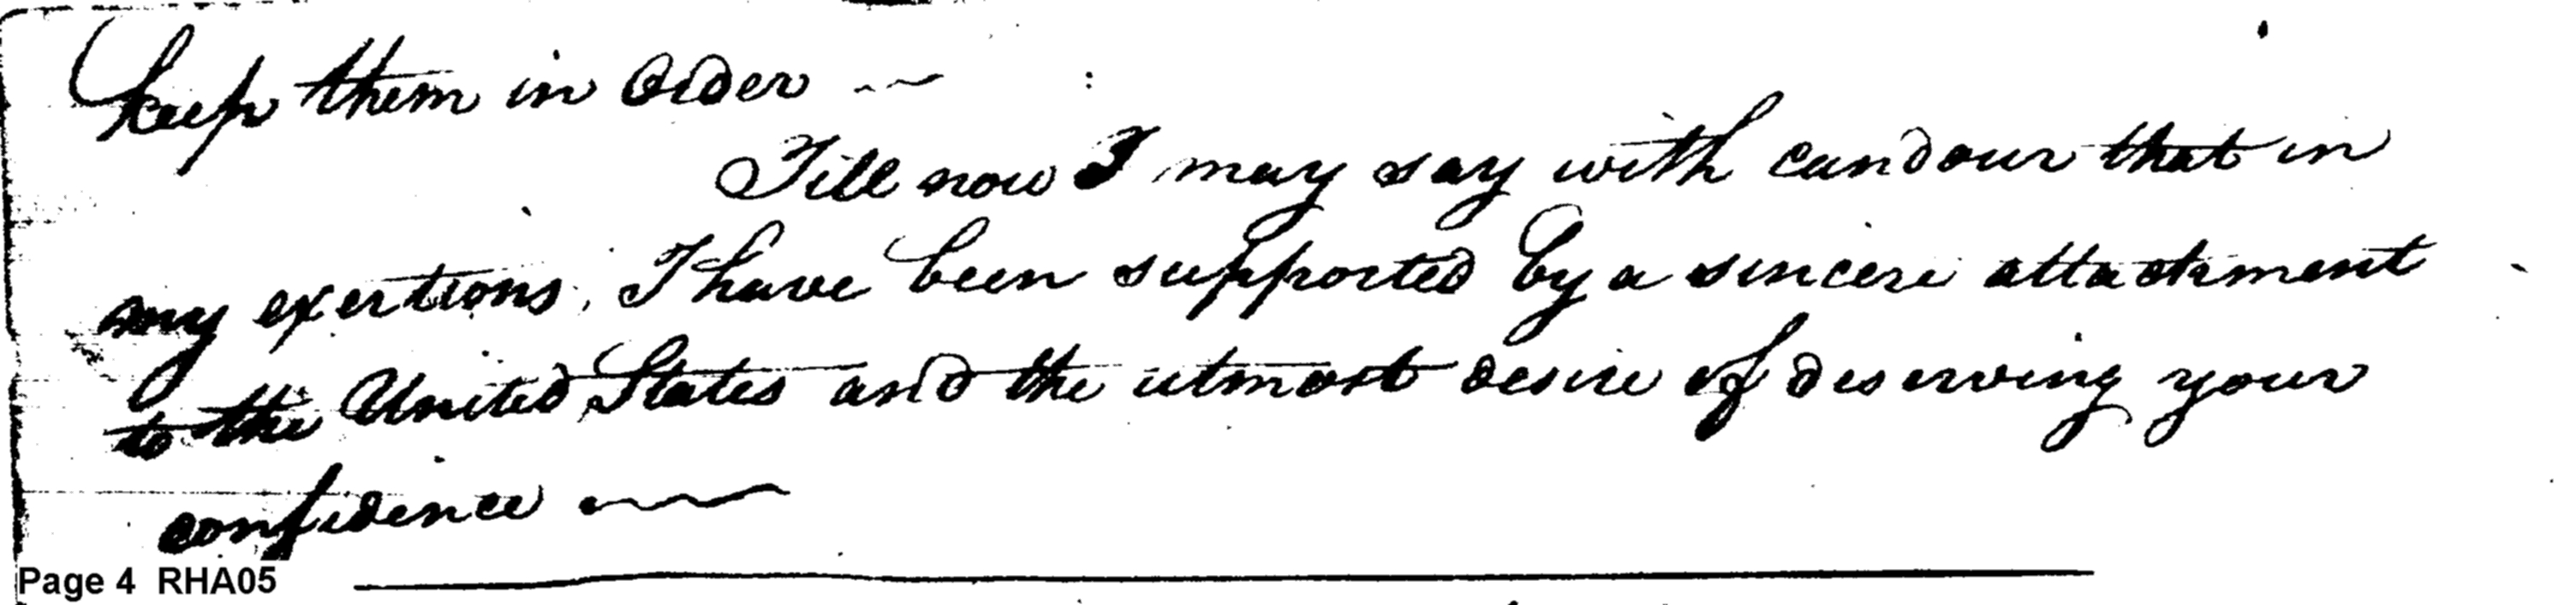 keep them in Order —
Till now I may say with candour that in
my exertions, I have been supported by a sincere attachment
to the United States and the utmost desire of deserving your
confidence —
Page 4 RHA05